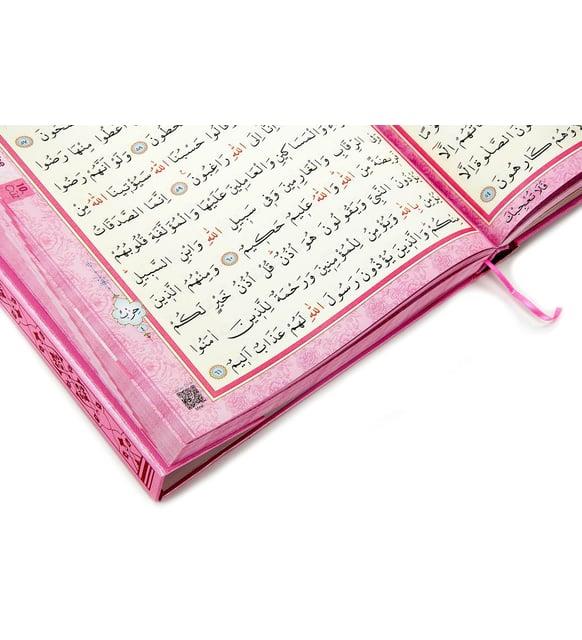 الصَّلٰوةَ اِلَّا
وَهُمْ كَارِهُونَ ﴿٥٤﴾
فَلَا تُعْجِبْكَ
اُعْطُوا مِنْهَا رَضُوا
يَسْخَطُونَ ﴿٥٨﴾ وَلَوْ اَنَّهُمْ رَضُوا
قَالُوا حَسْبُنَا اللّٰهُ سَيُؤْتِينَا اللّٰهُ مِنْ
اِنَّا اِلَى اللّٰهِ رَاغِبُونَ ﴿٥٩﴾ اِنَّمَا الصَّدَقَاتُ
وَالْمَسَاكِينِ وَالْعَامِلِينَ عَلَيْهَا وَالْمُؤَلَّفَةِ قُلُوبُهُمْ
الرِّقَابِ وَالْغَارِمِينَ وَفِي سَبِيلِ اللّٰهِ وَابْنِ السَّبِيلِ
اللّٰهِ وَاللّٰهُ عَلِيمٌ حَكِيمٌ ﴿٦٠﴾ وَمِنْهُمُ الَّذِينَ
النَّبِيَّ وَيَقُولُونَ هُوَ اُذُنٌ قُلْ اُذُنُ خَيْرٍ لَكُمْ
بِاللّٰهِ وَيُؤْمِنُ لِلْمُؤْمِنِينَ وَرَحْمَةٌ لِلَّذِينَ اٰمَنُوا
وَالَّذِينَ يُؤْذُونَ رَسُولَ اللّٰهِ لَهُمْ عَذَابٌ اَلِيمٌ ﴿٦١﴾
10. Cüz
حزب